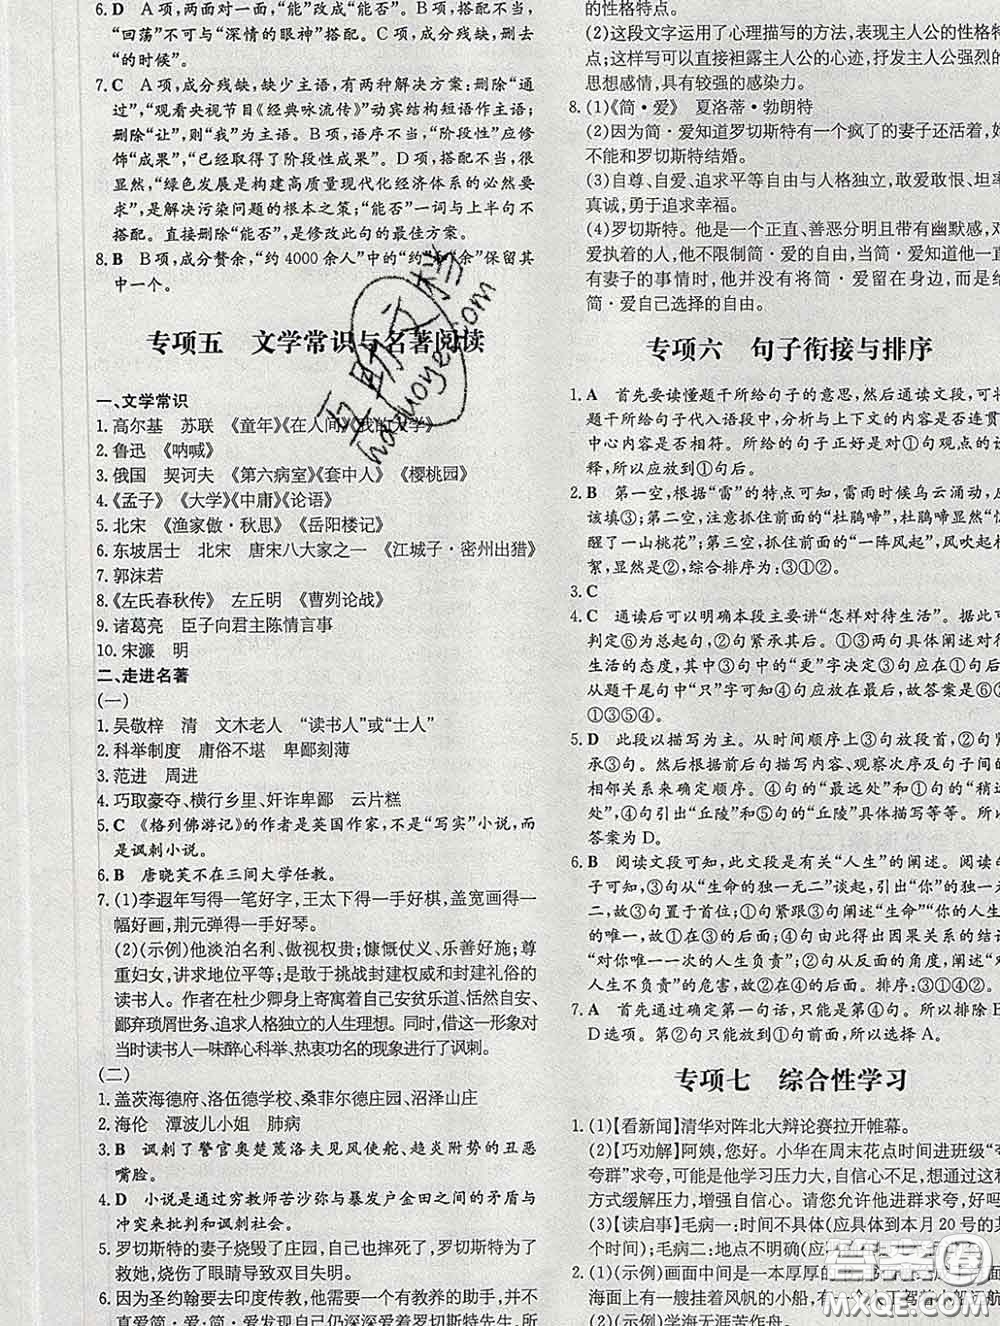 6. D　A项，两面对一面，“能”改成“能否”。B项，搭配不当，
“回荡”不可与“深情的眼神”搭配。C项，成分残缺，删去
“的时候”。
7. C　A项，成分残缺，缺少主语，有两种解决方案：删除“通
过”，“观看央视节目《经典咏流传》”动宾结构短语作主语；
删除“让”，则“我”为主语。B项，语序不当，“阶段性”应修
饰“成果”，“已经取得了阶段性成果”。D项，搭配不当，很
显然，“绿色发展是构建高质量现代化经济体系的必然要
求”，是解决污染问题的根本之策；“能否”一词与上半句不
搭配。直接删除“能否”，是修改此句的最佳方案。
8. B　B项，成分赘余，“约4000余人”中的“约”和“余”保留其
中一个。
专项五　文学常识与名著阅读
一、文学常识
1. 高尔基　苏联　《童年》《在人间》《我的大学》
2. 鲁迅　《呐喊》
3. 俄国　契诃夫　《第六病室》《套中人》　《樱桃园》
4. 《孟子》　《大学》《中庸》《论语》
5. 北宋　《渔家傲·秋思》　《岳阳楼记》
6. 东坡居士　北宋　唐宋八大家之一　《江城子·密州出猎》
7. 郭沫若
8. 《左氏春秋传》　左丘明　《曹刿论战》
9. 诸葛亮　臣子向君主陈情言事
10. 宋濂　明
二、走进名著
(一)
1. 吴敬梓　清　文木老人　“读书人”或“士人”
2. 科举制度　庸俗不堪　卑鄙刻薄
3. 范进　周进
4. 巧取豪夺、横行乡里、奸诈卑鄙　云片糕
5. C　《格列佛游记》的作者是英国作家，不是“写实”小说，而
是讽刺小说。
6. B　唐晓芙不在三闾大学任教。
7. (1)李遐年写得一笔好字，王太下得一手好棋，盖宽画得一
幅好画，荆元弹得一手好琴。
(2)(示例)他淡泊名利、傲视权贵；慷慨仗义、乐善好施；尊
重妇女，讲求地位平等；是敢于挑战封建权威和封建礼俗的
读书人。作者在杜少卿身上寄寓着自己安贫乐道、恬然自安、
鄙弃琐屑世务、追求人格独立的人生理想。同时，借这一形象对
当时读书人一味醉心科举、热衷功名的现象进行了讽刺。
(二)
1. 盖茨海德府、洛伍德学校、桑菲尔德庄园、沼泽山庄
2. 海伦　潭波儿小姐　肺病
3. B　讽刺了警官奥楚蔑洛夫见风使舵、趋炎附势的丑恶
嘴脸。
4. D　小说是通过穷教师苦沙弥与暴发户金田之间的矛盾与
冲突来批判和讽刺社会。
5. 罗切斯特的妻子烧毁了庄园，自己也摔死了，罗切斯特为了
救她，烧伤了眼睛导致双目失明。
6. 因为圣约翰要去印度传教，他需要一个有教养的助手，并非
真爱简·爱，简·爱发现自己仍深深爱着罗切斯特先生。所
的性格特点。
(2)这段文字运用了心理描写的方法，表现主人公的性格特
点；这样写可以直接袒露主人公的心迹，抒发主人公强烈的
思想感情，具有较强的感染力。
8. (1)《简·爱》　夏洛蒂·勃朗特
(2)因为简·爱知道罗切斯特有一个疯了的妻子还活着，
不能和罗切斯特结婚。
(3)自尊、自爱、追求平等自由与人格独立，敢爱敢恨、坦率
真诚，勇于追求幸福。
(4)罗切斯特。他是一个正直、善恶分明且带有幽默感，对
爱执着的人，他不限制简·爱的自由，当简·爱知道
有妻子的事情时，他并没有将简·爱留在身边，而是给
简·爱自己选择的自由。
专项六　句子衔接与排序
1. A　首先要读懂题干所给句子的意思，然后通读文段，可将
题干所给句子代入语段中，分析与上下文的内容是否连贯
中心内容是否相符。所给的句子正好是对①句观点的
释，所以应放到①句后。
2. B　第一空，根据“雷”的特点可知，雷雨时候乌云涌动，
该填③；第二空，注意抓住前面的“杜鹃啼”，杜鹃啼显然“
醒了一山桃花”；第三空，抓住前面的“一阵风起”，风吹起
絮，显然是②，综合排序为：③①②。
3. C
4. C　通读后可以明确本段主要讲“怎样对待生活”。据此可
判定⑥为总起句，②句紧承其后。①③两句具体阐述对待
生活的态度，其中③句中的“更”字决定③句应在①句后。
从题干尾句中“只”字可知④句应放在最后，故答案是⑥②
①③⑤④。
5. D　此段以描写为主。从时间顺序上③句放段首，②句紧
承③句。然后根据前后句描写内容、观察次序及句子间的
相邻关系来确定顺序。④句的“最远处”和①句的“稍近
处”，④句引出“丘陵”和⑤句的“丘陵”具体描写等等。所以
答案为D。
6. B　阅读文段可知，此文段是有关“人生”的阐述。阅读
子可知，③句从“生命的独一无二”谈起，引出“你”的独一无
二，故③句置于首位；①句紧跟③句阐述“生命”“你的人生
的唯一，故①在③的后面；④句由此得出因果关系的结
“对你唯一一次的人生负责”；②句从反面的角度，阐述“对
人生不负责”的危害，故②在④的后面。排序：③①④②。
7. A　首先通过确定第一句话，只能是第④句。所以排除B
D选项。第②句只能放到①句前面，所以选择A。
专项七　综合性学习
1. (1)【看新闻】清华对阵北大辩论赛拉开帷幕。
(2)【巧劝解】阿姨，您好。小华在周末花点时间进班级“夸
夸群”求夸，可能是他学习压力大，自信心不足，想通过
方式缓解压力，增强自信心。请您允许他进群求夸，好吗
(3)【读启事】毛病一：时间不具体(应具体到本月20号的
个时间)；毛病二：地点不明确(应
2. (1)(示例)画面中间是一本厚厚的
海面上有一艘挂着风帆的小船，有一个人驾着小
(2)(示例)学海无涯苦作舟。
百助文档
haiduoyejie.com
答案圈
MXQE.COM